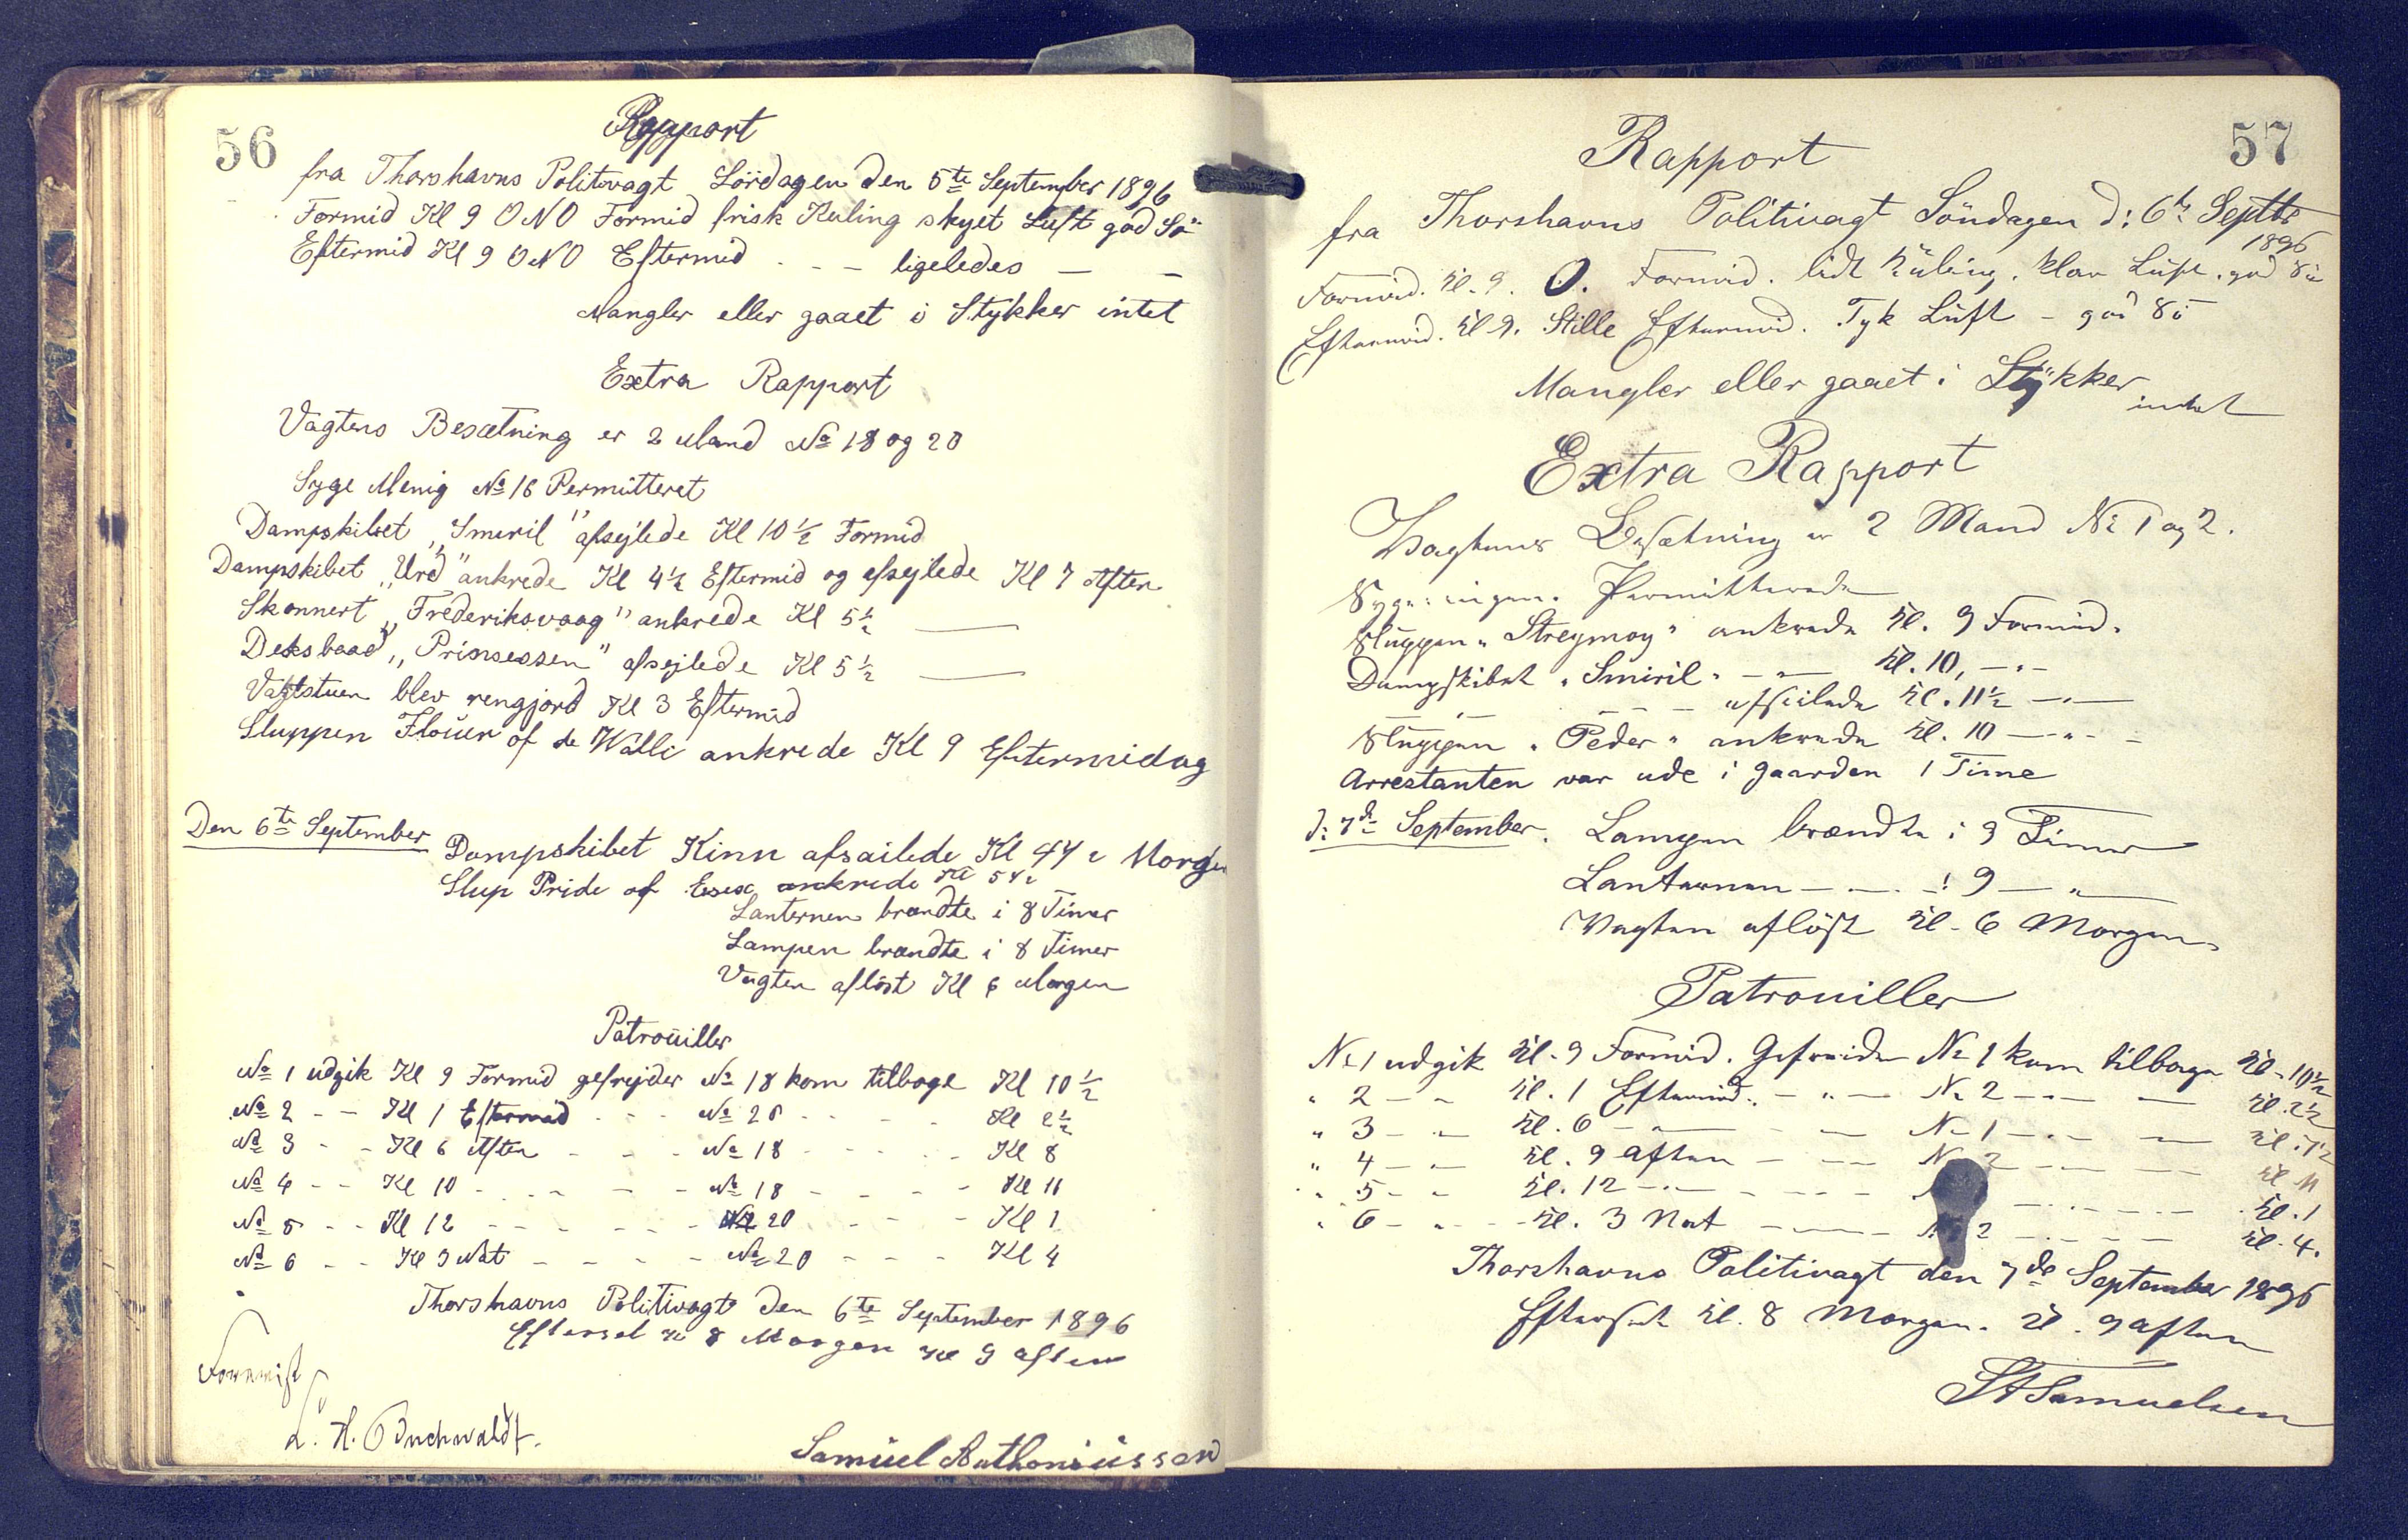 56
Rapport
fra Thorshavns Politivagt Lördagen den 5te September 1896
Formid Kl 9 ONO Formid frisk Kuling skyet Luft god Sö
Eftermid Kl 9 ONO Eftermid - - - ligeledes — —
Mangler eller gaaet i Stykker intet
Extra Rapport
Vagtens Besætning er 2 Mand No 18 og 20
Syge Menig No 16 Permitteret
Dampskibet „Smeril" afsejlede Kl 10 ½ Formid
Dampskibet „Urd" ankrede Kl 4½ Eftermid og afsejlede Kl 7 Aften
Skonnert „Frederiksvaag" ankrede Kl 5½ —
Deksbaad „Prinsessen" afsejlede Kl 5½ —
Vagtstuen blev rengjord Kl 3 Eftermid
Sluppen Floüer of de Walle ankrede Kl 9 Eftermidag
Den 6te September
Dampskibet Kinn afsailede Kl 4½ Morgen
Slup Pride of Esex ankrede Kl 5½
Lanternen brændte i 8 Timer
Lampen brændte i 8 Timer
Vagten aflöst Kl 6 Morgen
Patroüiller
No 1 udgik Kl 9 Formid gefrejder No 18 kom tilbage Kl 10½
No 2 - - Kl 1 Eftermid - - - No 20 - - - - Kl 2½
No 3 - - Kl 6 Aften - - - No 18 - - - - - Kl 8
No 4 - - Kl 10 - - - - - - No 18 - - - - Kl 11
No 5 - - Kl 12 - - - - - - No 20 - - - Kl 1
No 6 - - Kl 3 Nat - - - - No 20 - - - Kl 4
Thorshavns Politivagt den 6te September 1896
Eftersel Kl 8 Morgen Kl 9 Aften
Foravist
L. H. Buchwaldt.
Samüel Anthoniüssen
57
Rapport
fra Thorshavns Politivagt Söndagen d: 6te Septbr
1896
Formid. Kl. 9. O. Formid. lidt Küling. klar Luft. god Sö
Eftermid. Kl 9. Stille Eftermid. Tyk Luft - god Sö
Mangler eller gaaet i Stykker
intet
Extra Rapport
Vagtens Besætning er 2 Mand No 1 og 2.
Syge: ingen. Permitterede
Sluppen „Streymoy" ankrede Kl. 9 Formid.
Dampskibet „Smiril" - — Kl. 10, — „ -
— „ — - - - afseilede Kl. 11½ — „ —
Sluppen „Peder" ankrede Kl. 10 — „ - -
Arrestanten var ude i Gaarden 1 Time
d: 7de September. Lampen brændte i 9 Timer
Lanternen — — - i 9 — „
Vagten aflöst Kl. 6 Morgen.
Patrouiller
No 1 udgik Kl. 9 Formid. Gefreider No 1 kom tilbage Kl. 10½
" 2 - - Kl. 1 Eftermid. - „ - No 2 - - — Kl. 2½
" 3 - - Kl. 6 - — - — No 1 - - - — Kl. 7½
" 4 - - Kl. 9 Aften - - - N 2 - - - - Kl 11
" 5 - - Kl. 12 - - — - - - - - - - Kl. 1
" 6 - - - Kl. 3 Nat - — - No 2 - - - - Kl. 4.
Thorshavns Politivagt den 7de September 1896
Efterset Kl. 8 Morgen. Kl. 9 Aften
Samuelsen